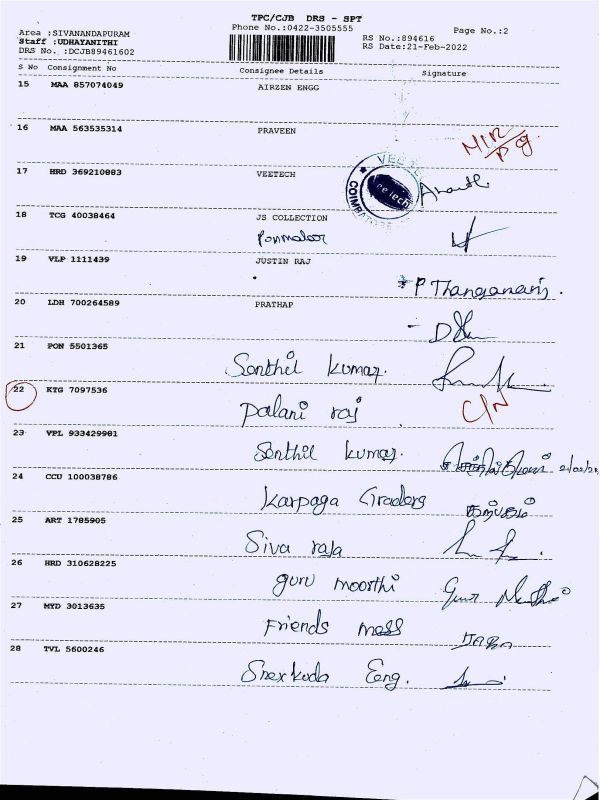 TPC/CJB DRS - SPT
Phone No.:0422-3505555
Page No.:2
Area :SIVANANDAPURAM
RS No.:894616
Staff :UDHAYANITHI
RS Date:21-Feb-2022
DRS No. :DCJB89461602
S No Consignment No Consignee Details Signature
15 MAA 857074049 AIRZEN ENGG
16 MAA 563535314 PRAVEEN
17 HRD 369210883 VEETECH
COIMBATORE
Veetech
18 TCG 40038464 JS COLLECTION
19 VLP 1111439 JUSTIN RAJ
20 LDH 700264589 PRATHAP
21 PON 5501365 Senthil Kumar.
22 KTG 7097536 Palani raj C/N
23 VPL 933429981 Senthil Kumar.
24 CCU 100038786 Karpaga Graders
25 ART 1785905 Siva raja
26 HRD 310628225 guru moorthi
27 MYD 3013635 Friends mess
28 TVL 5600246